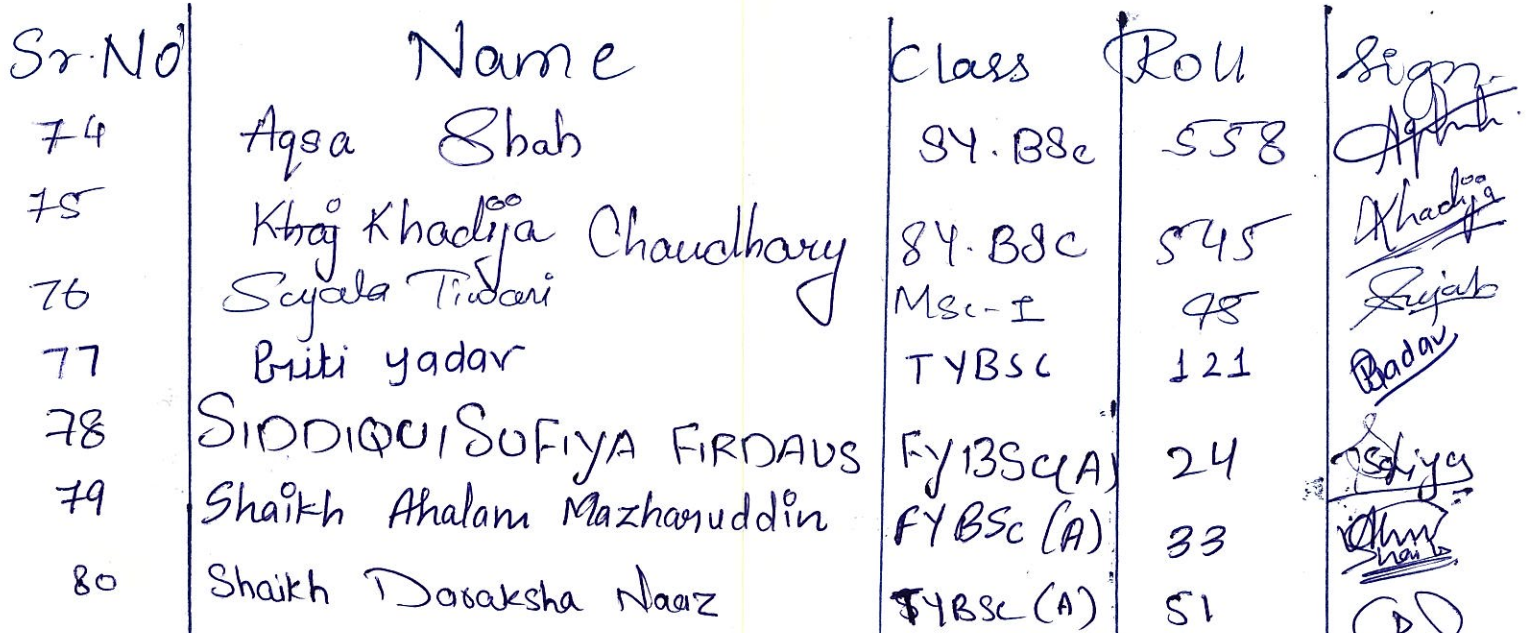 Sr.No Name Class Roll Sign.
74 Aqsa Shah SY.BSc 558
75 Khadija Chaudhary SY.BSC 545 Khadija
76 Tiwari MSc-I 98
77 Priti yadav TYBSC 121
78 SIDDIQUI SUFIYA FIRDAUS FYBSC(A) 24
79 Shaikh Ahalam Mazharuddin FYBSc (A) 33
80 Shaikh Daraksha Naaz TYBSC (A) 51